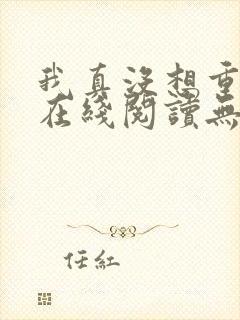 我真没想重
在綫閱讀無
任紅